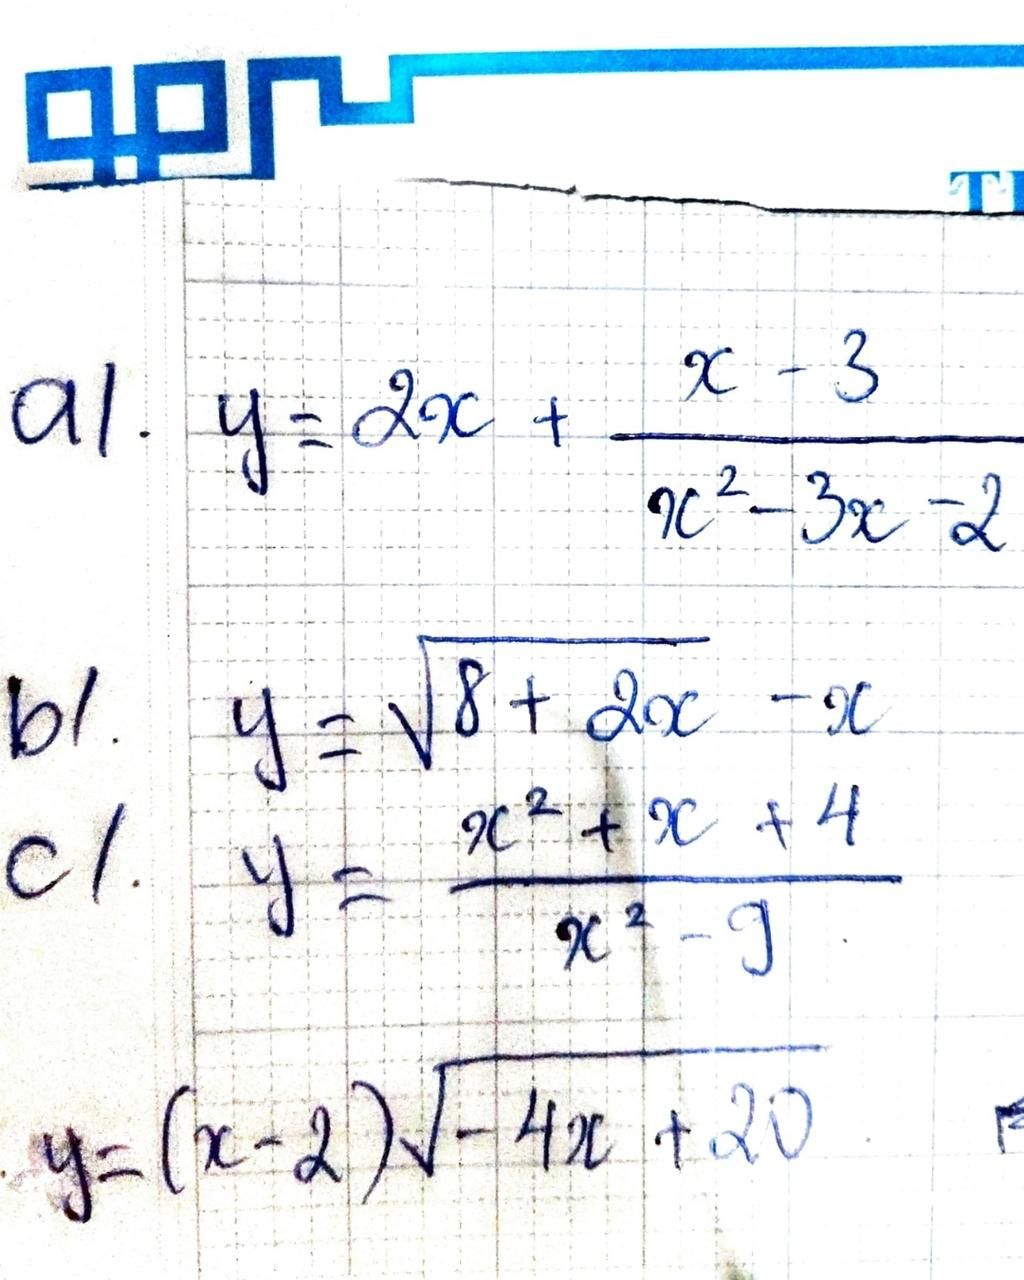 a/. y = 2x + \frac{x - 3}{x^2 - 3x - 2}
b/. y = \sqrt{8 + 2x} - x
c/. y = \frac{x^2 + x + 4}{x^2 - 9}
y = (x - 2)\sqrt{-4x + 20}